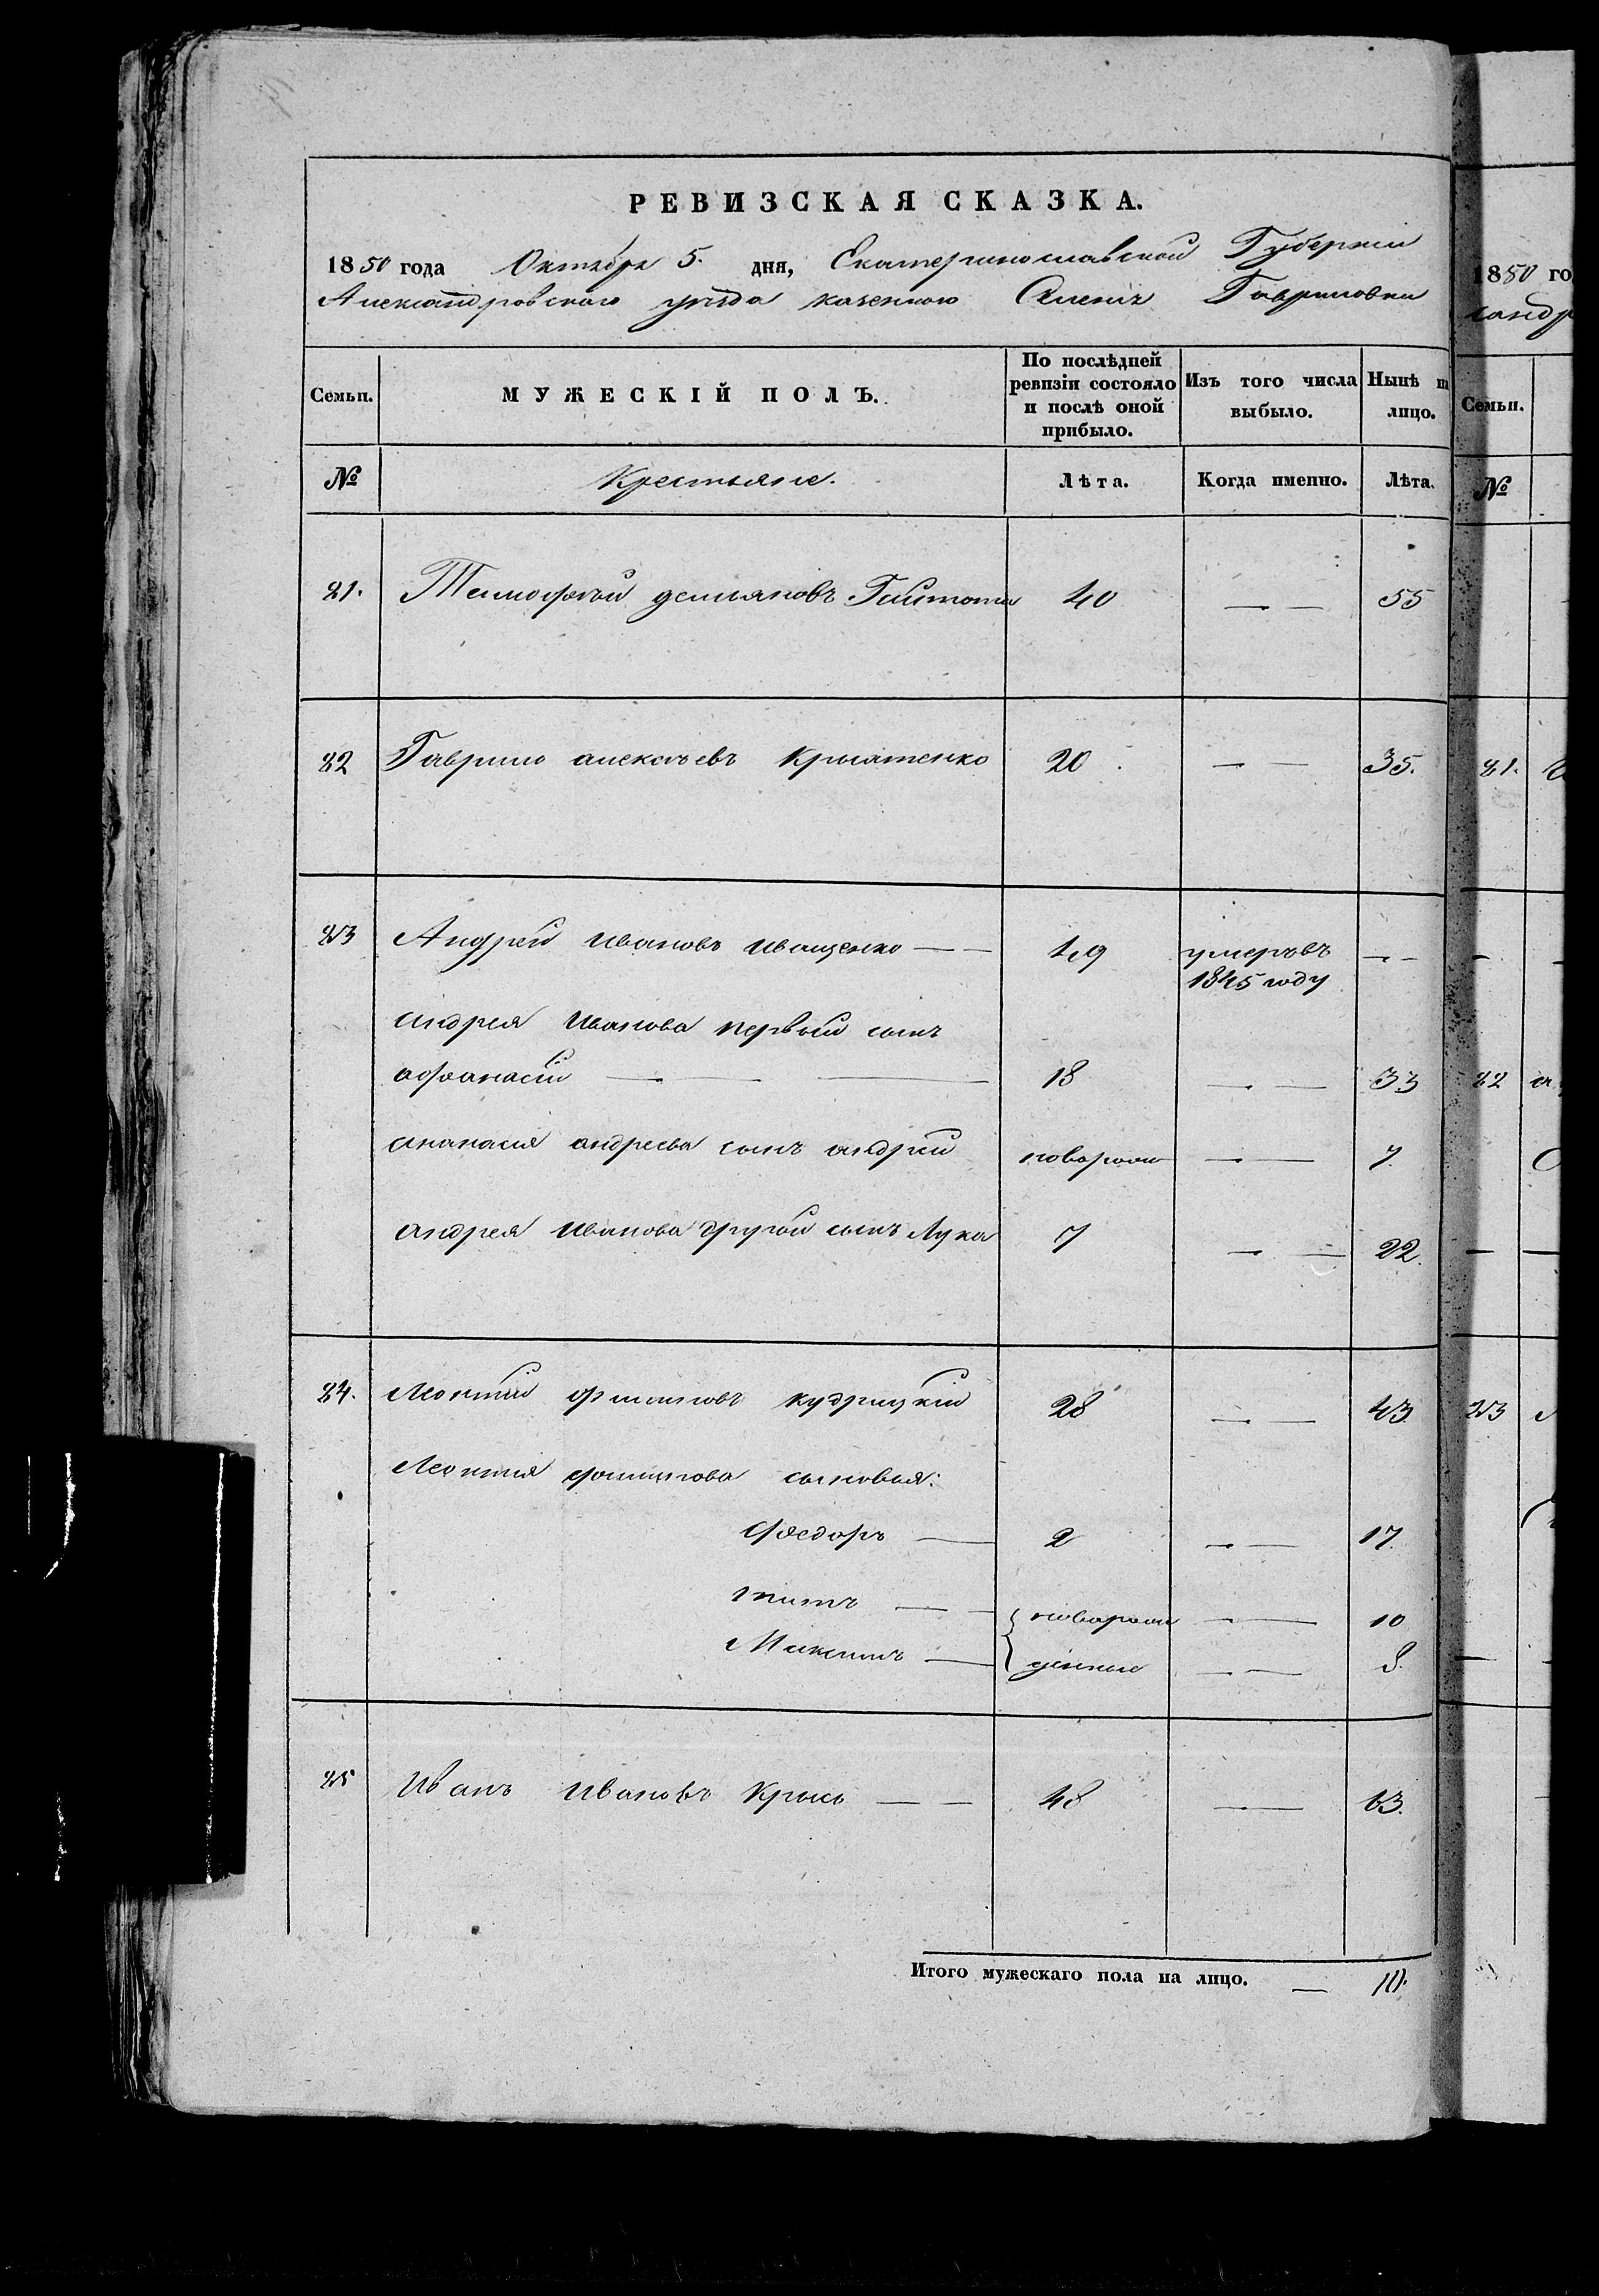 РЕВИЗСКАЯ СКАЗКА.
1850 года Октября 5. дня, Екатеринославской Губерніи
Александровскаго уѣзда казенного Селенія Гавриловки
Семьи. МУЖЕСКІЙ ПОЛЪ. По послѣдней ревизіи состояло и послѣ оной прибыло. Изъ того числа выбыло. Нынѣ на лицо.
№ Крестьяне. Лѣта. Когда именно. Лѣта.
21. Тимофѣй демьяновъ 40 — — 55
22 Гаврило алексѣевъ 20 — — 35.
23 Андрей Ивановъ Иващенко — — 49 умеръ въ 1845 году — —
андрея Иванова первый сынъ
афонасій — — — 18 — — 33
андреева сынъ андрей новорож — — 7.
андрея Иванова другой сынъ Лука 7 — — 22.
24. Леонтій кудрицкій 28 — — 43
Леонтія сыновья:
Федоръ — 2 — — 17.
титъ — — новорож — — 10
Максимъ — денные — — 8.
25 Иванъ Ивановъ — — 48 — — 63.
Итого мужескаго пола на лицо. — 10.
1850 го
сандр
Семьи.
№
21.
22
23